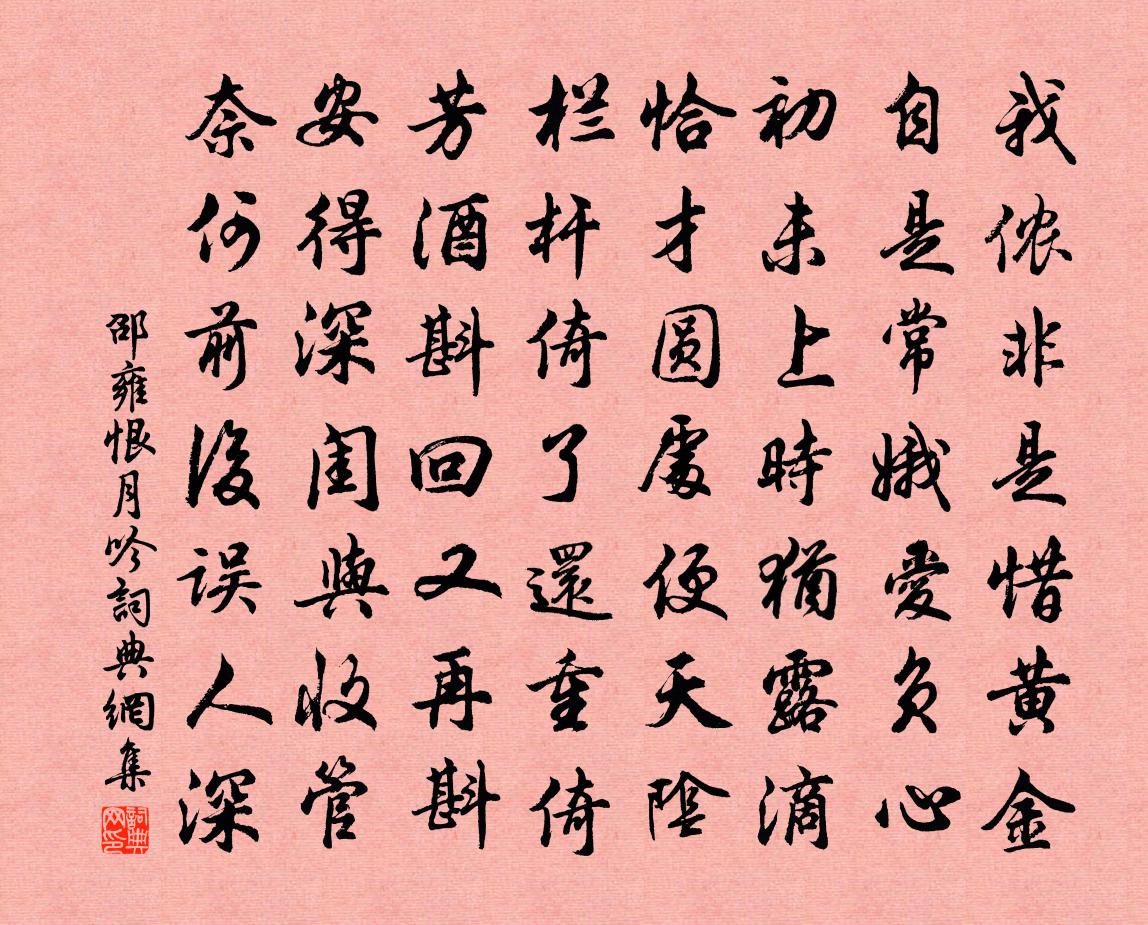 我侬非是惜黄金
自是常娥愛负心
初未上時猶露滴
恰才圆處便天陰
栏杆倚了還重倚
芳酒斟回又再斟
安得深闺與收管
奈何前後误人深
邵雍恨月吟詞典網集
詞典网印